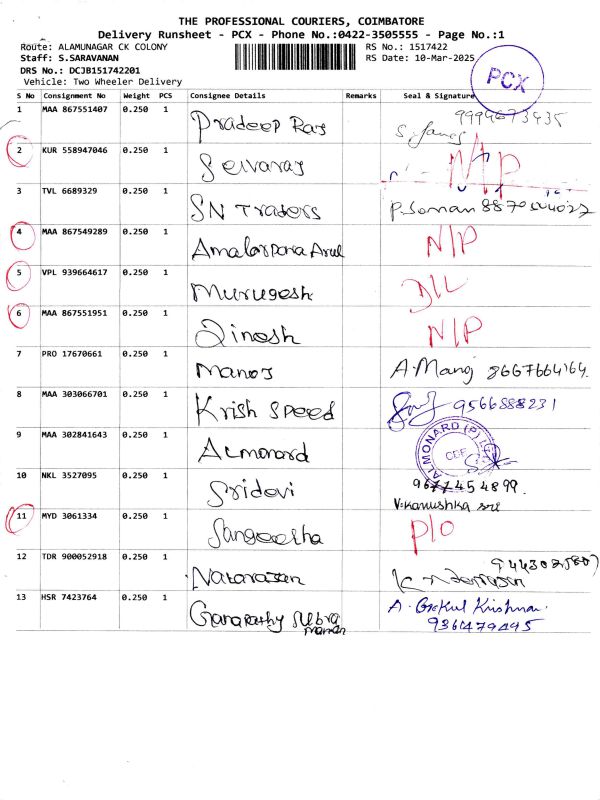 THE PROFESSIONAL COURIERS, COIMBATORE
Delivery Runsheet - PCX - Phone No.:0422-3505555 - Page No.:1
Route: ALAMUNAGAR CK COLONY
RS No.: 1517422
Staff: S.SARAVANAN
RS Date: 10-Mar-2025
DRS No.: DCJB151742201
Vehicle: Two Wheeler Delivery
PCX
S No Consignment No Weight PCS Consignee Details Remarks Seal & Signature
1 MAA 867551407 0.250 1 Pradeep Raj 9994673435
2 KUR 558947046 0.250 1 Selvaraj N/P
3 TVL 6689329 0.250 1 SN Traders
4 MAA 867549289 0.250 1 Amalorpava Arul N/P
5 VPL 939664617 0.250 1 Murugesh D/L
6 MAA 867551951 0.250 1 Dinesh N/P
7 PRO 17670661 0.250 1 Manoj A.Manoj 8667664164.
8 MAA 303066701 0.250 1 Krish Speed 9566888231
9 MAA 302841643 0.250 1 Almonard ALMONARD (P) LTD CBE
10 NKL 3527095 0.250 1 Sridevi 9677454899.
V.Kanushka sre
11 MYD 3061334 0.250 1 Sangeetha P/O
12 TDR 900052918 0.250 1 Natarajan
13 HSR 7423764 0.250 1 Ganapathy Subra manian A. Gokul Krishnan.
9361479495